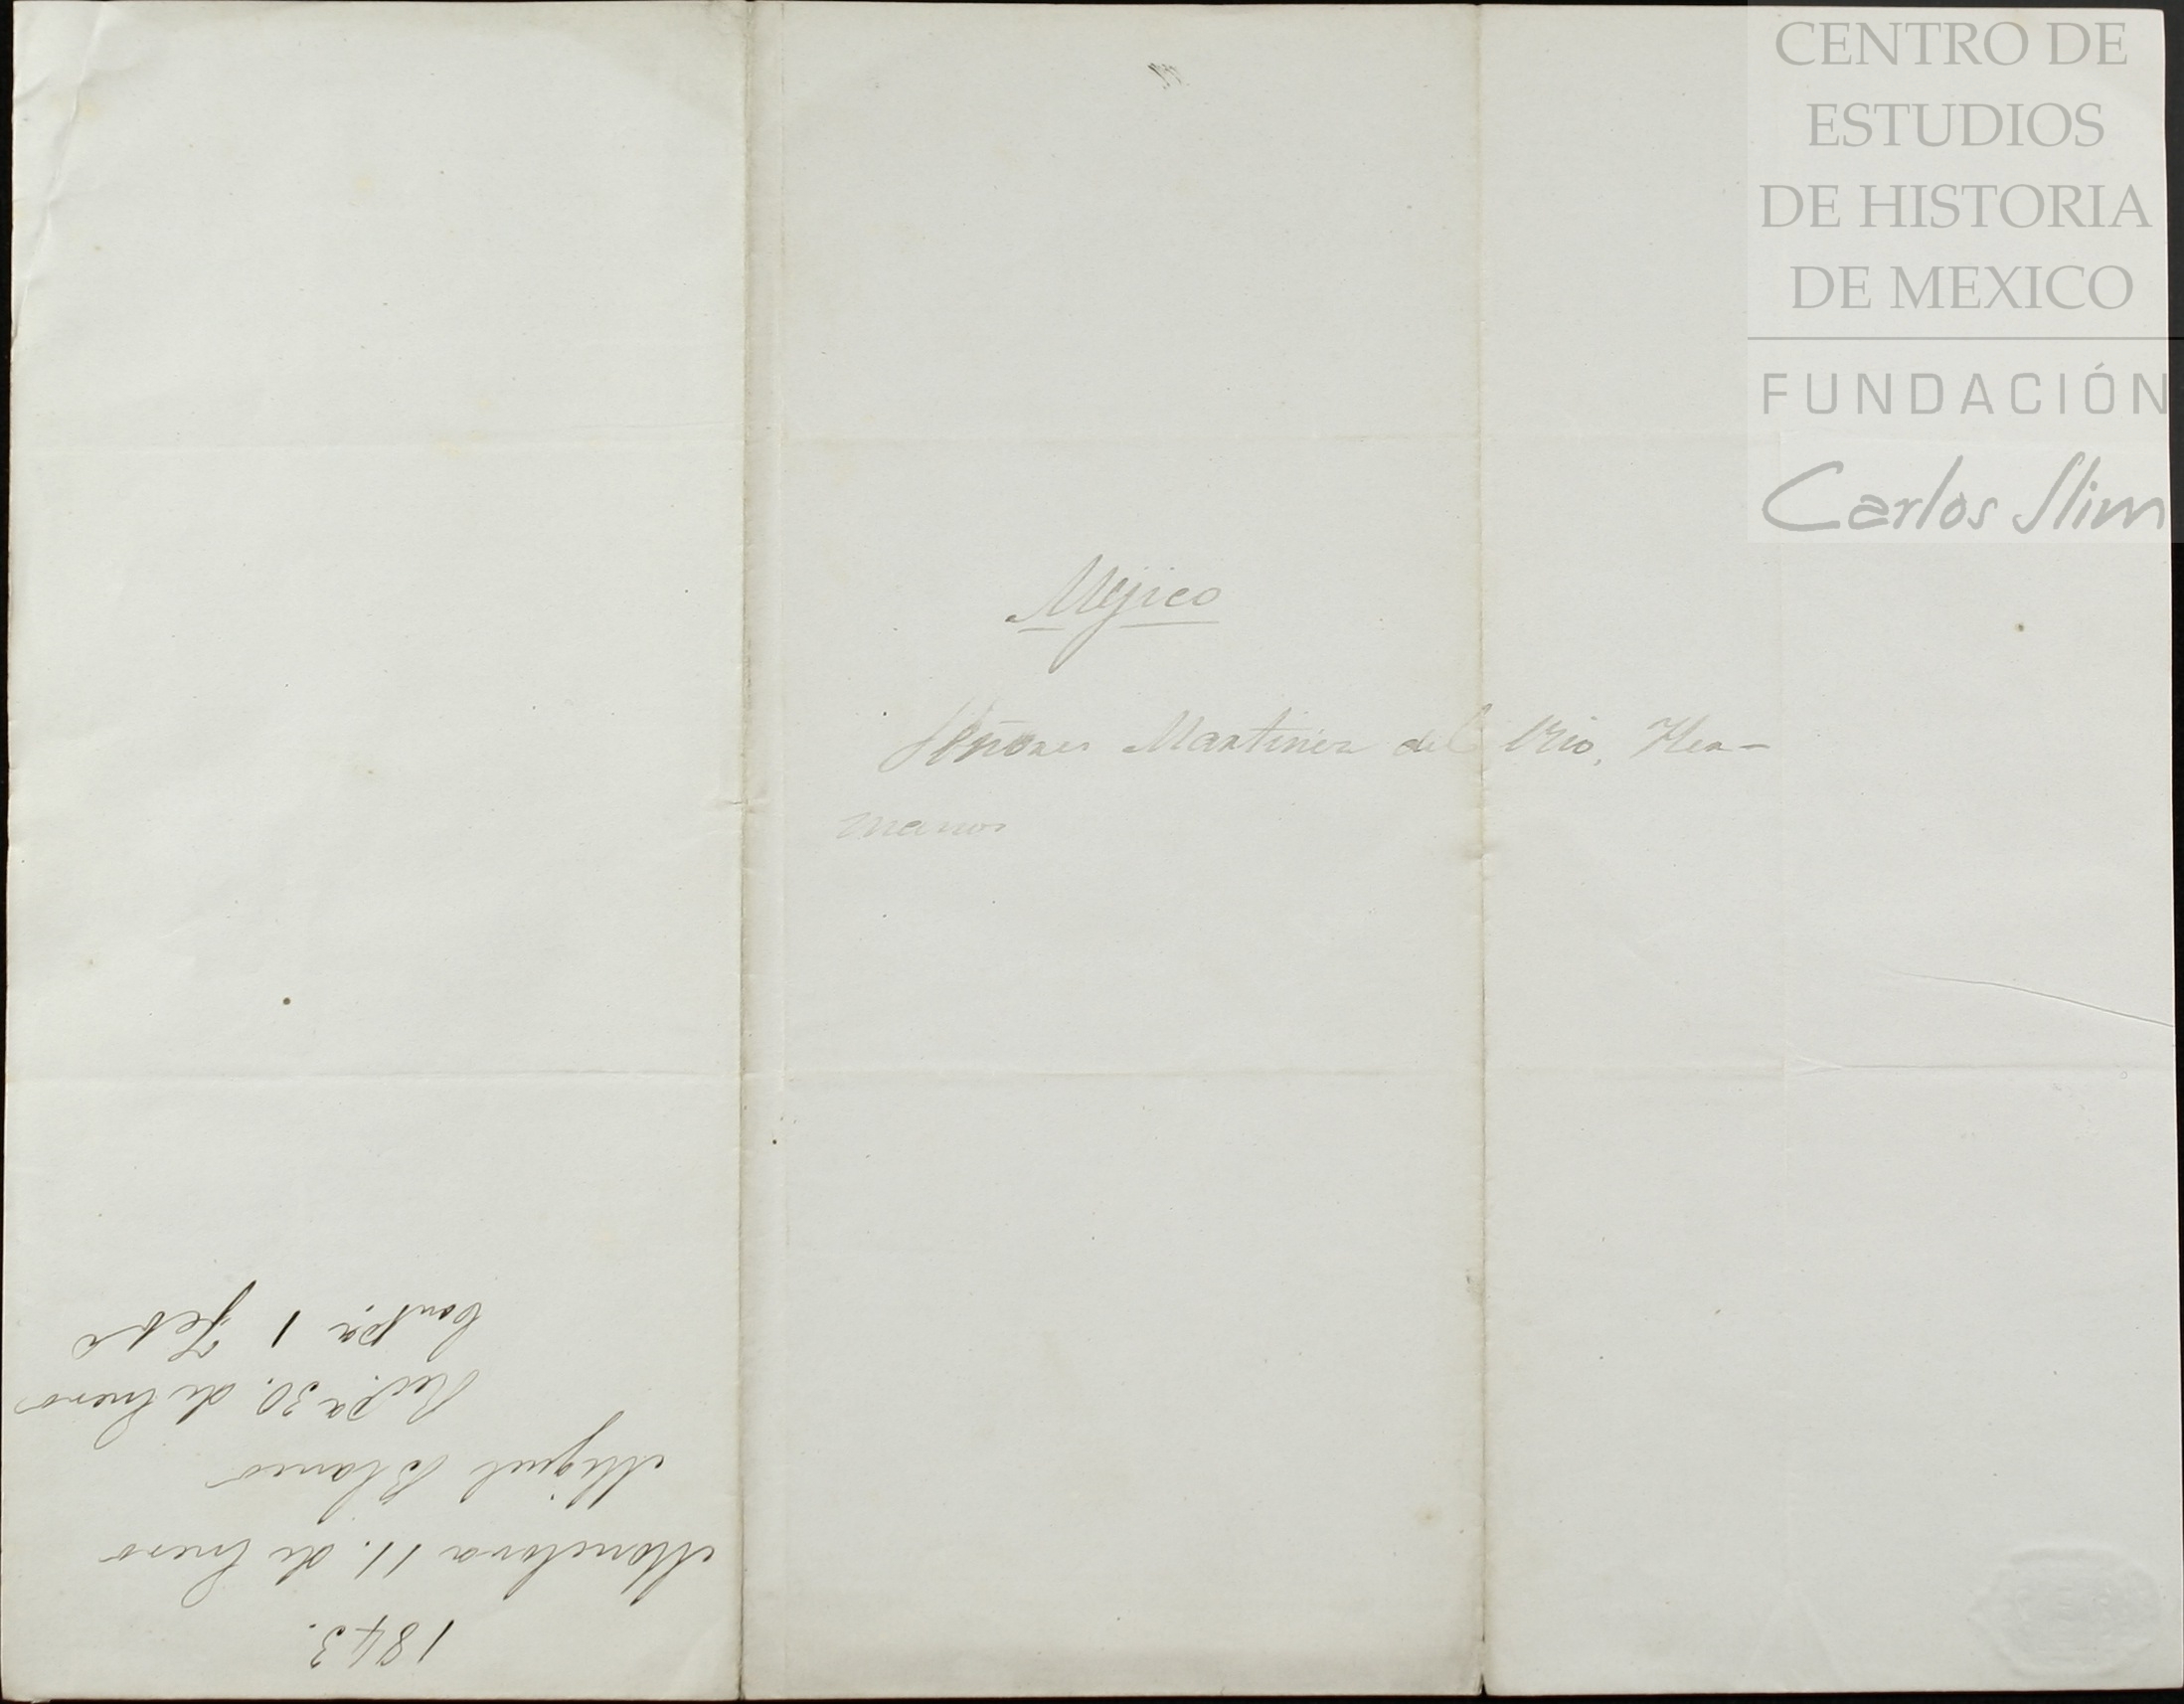 CENTRO DE
ESTUDIOS
DE HISTORIA
DE MEXICO
FUNDACIÓN
Carlos Slim
Méjico
Señores Martinez del Rio, Her-
manos
1843.
Monclova 11. de Enero
Miguel Blanco
Recd.ª 30. de Enero
Cont.ª 1 Febo